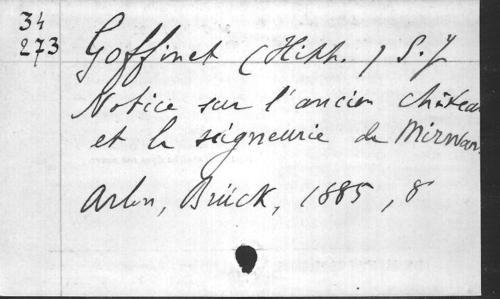 34
273
Goffinet (Hipp.) S.J
Notice sur l'ancien château
et la seigneurie de Mirwart
Arlon, Brück, 1885, 8